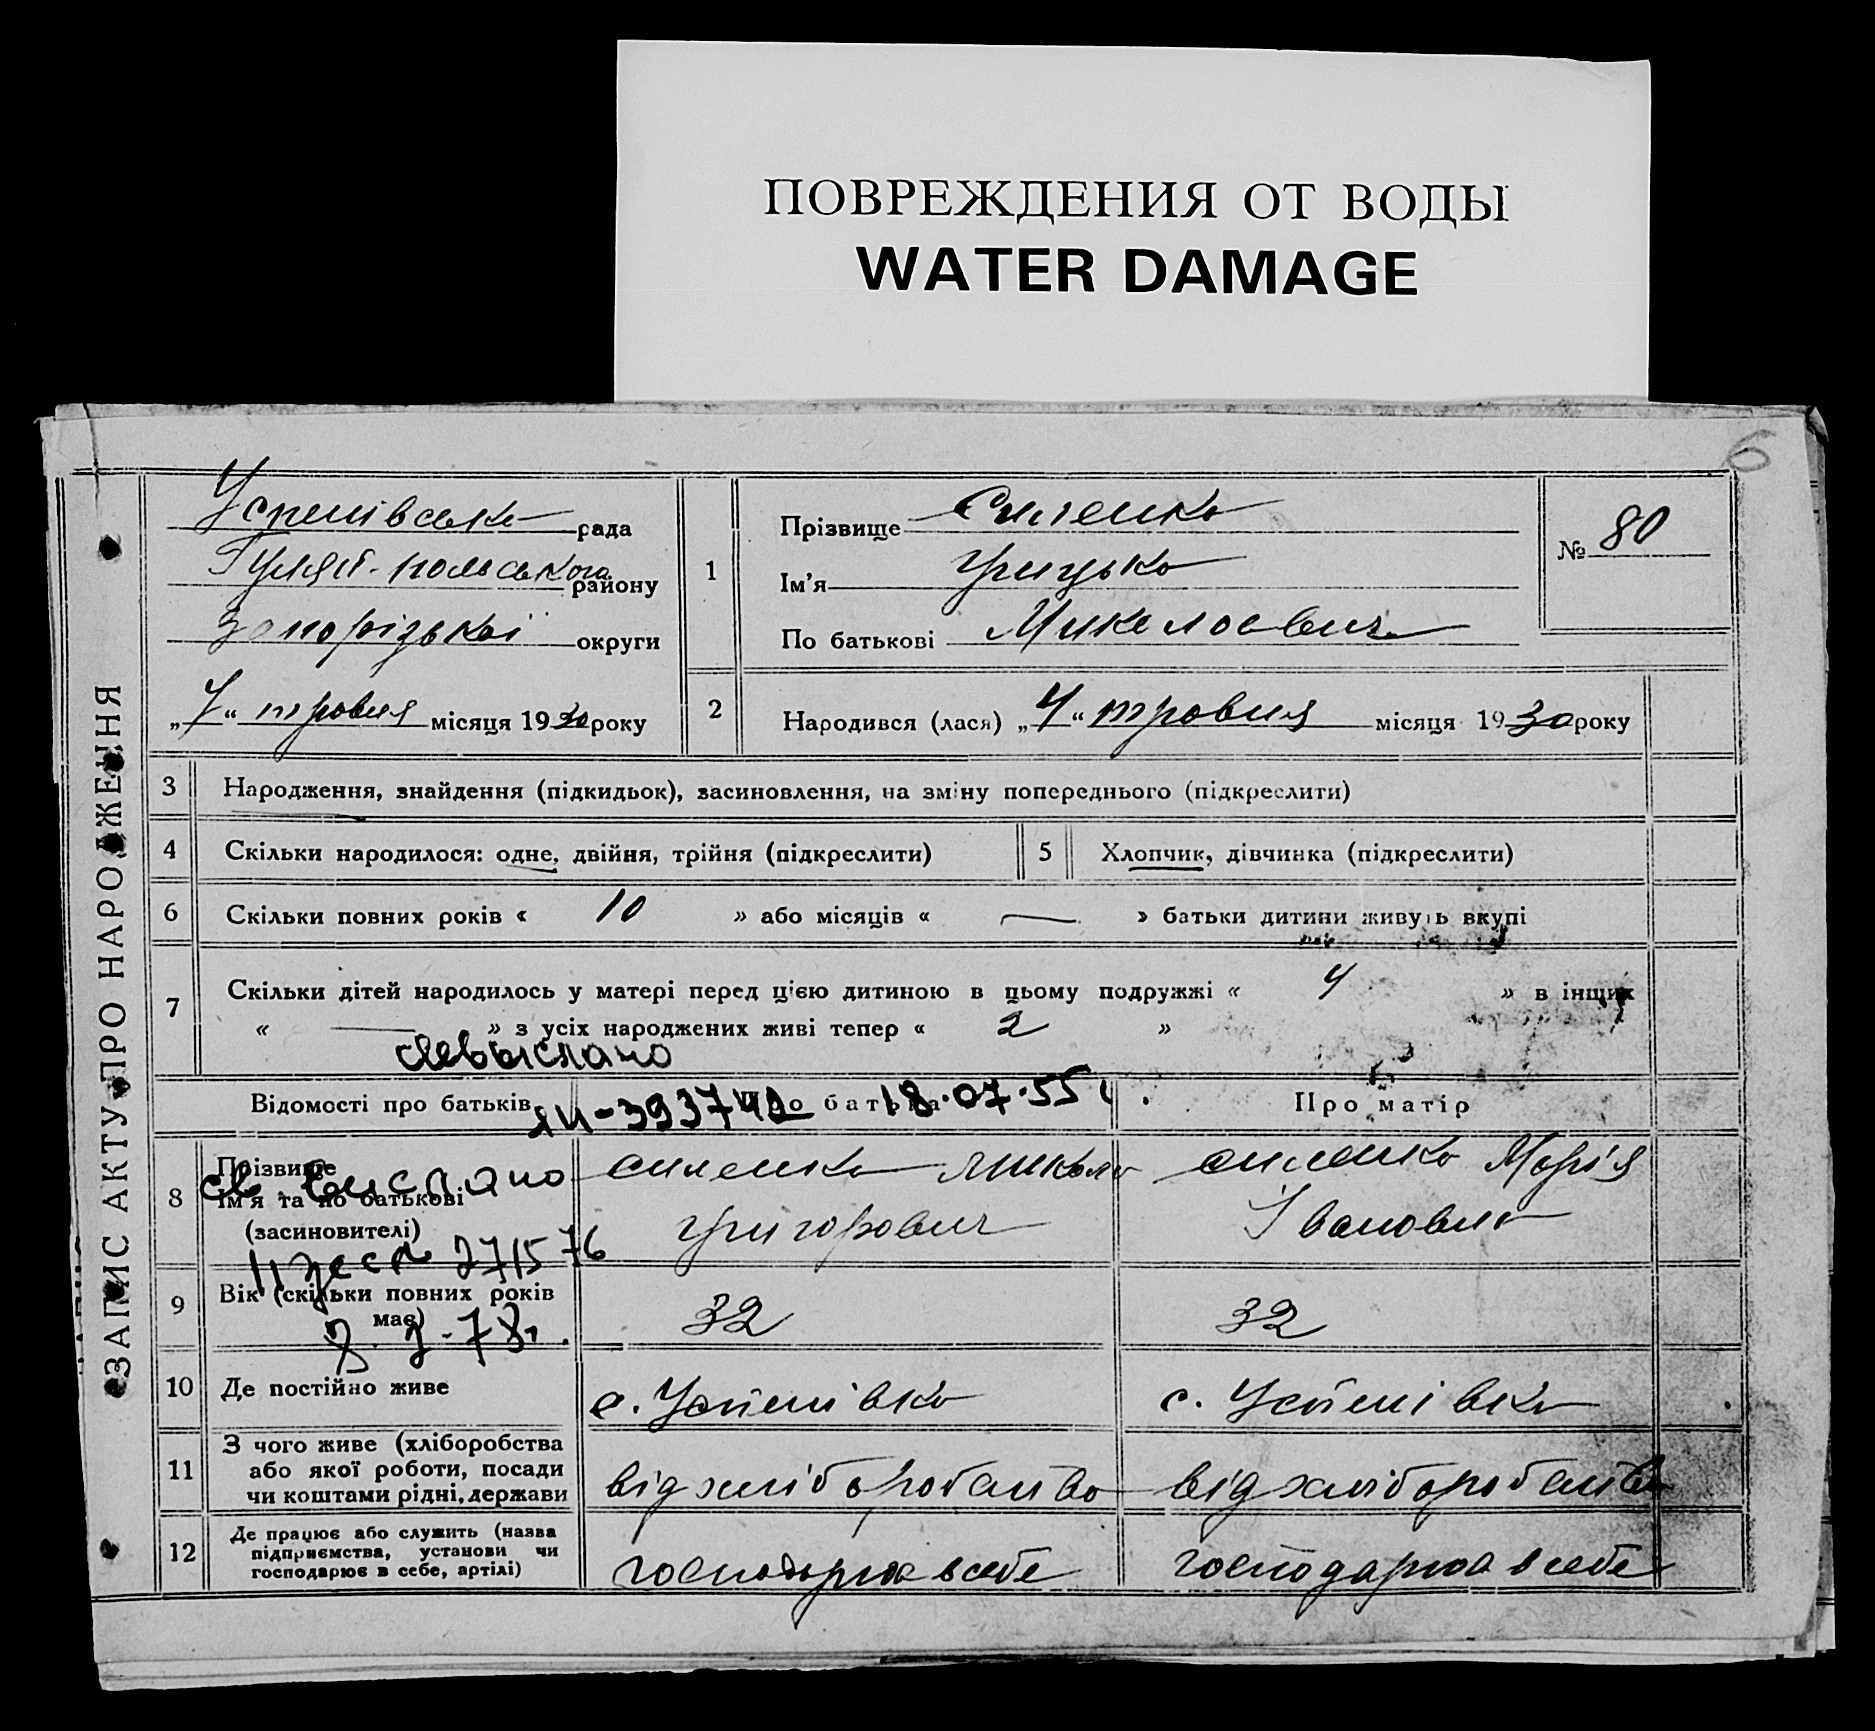 ПОВРЕЖДЕНИЯ ОТ ВОДЫ
WATER DAMAGE
6
ЗАПИС АКТУ ПРО НАРОДЖЕННЯ
Успенівська рада
Гуляй-польського району
Запорізької округи
„7“ травня місяця 1930 року
1
Прізвище Силенко
Ім'я Грицько
По батькові Миколаевич
№ 80
2 Народився (лася) „4“ травня місяця 1930 року
3 Народження, знайдення (підкидьок), засиновлення, на зміну попереднього (підкреслити)
4 Скільки народилося: одне, двійня, трійня (підкреслити) 5 Хлопчик, дівчинка (підкреслити)
6 Скільки повних років « 10 » або місяців « — » батьки дитини живуть вкупі
7 Скільки дітей народилось у матері перед цією дитиною в цьому подружжі « 4 » в інших
« — » з усіх народжених живі тепер « 2 »
Відомості про батьків Про батька Про матір
18.07.55
8 Прізвище Силенко Микола Силенко Марія
Ім'я та по батькові Григорович Івановна
(засиновителі)
9 Вік (скільки повних років має) 32 32
10 Де постійно живе с. Успенівка с. Успенівка
11 З чого живе (хліборобства
або якої роботи, посади
чи коштами рідні, держави від хліборобства від хліборобства
12 Де працює або служить (назва
підприємства, установи чи
господарює в себе, артілі) господарює в себе господарює в себе